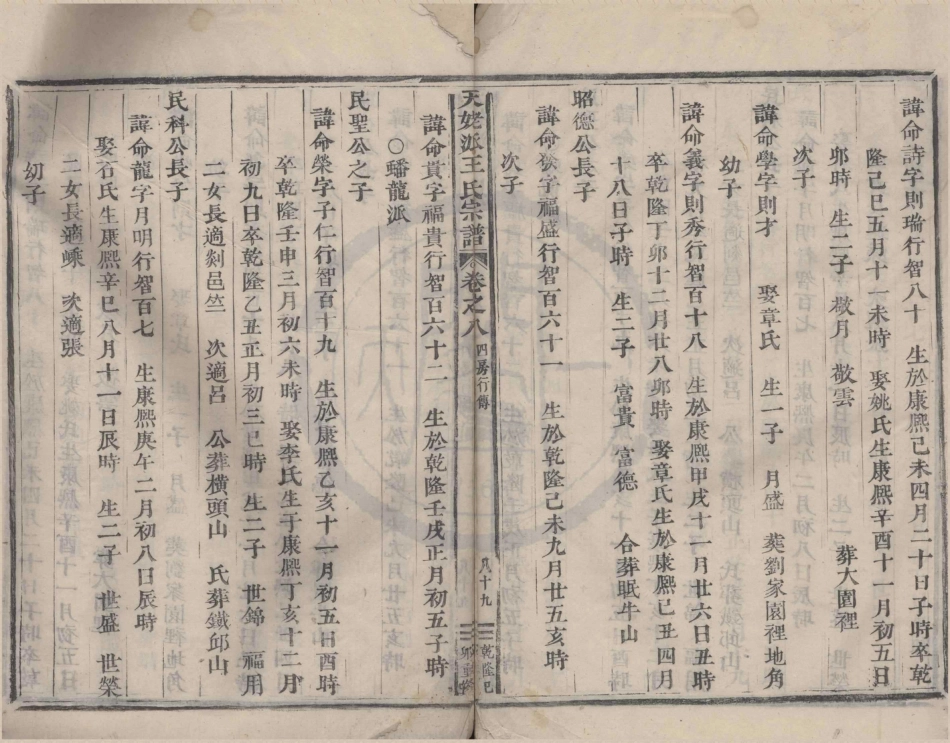 諱命詩字則瑞行智八十 生於康熙己未四月二十日子時卒乾
隆己巳五月十一未時 娶姚氏生康熙辛酉十一月初五日
卯時 生二子 敬月 敬雲 葬大園裡
次子
諱命學字則才 娶章氏 生一子 月盛 葬劉家園裡地角
幼子
諱命義字則秀行智百十八 生於康熙甲戌十一月廿六日丑時
卒乾隆丁卯十二月廿八卯時 娶章氏生於康熙己丑四月
十八日子時 生二子 富貴 富德 合葬眠牛山
昭德公長子
諱命發字福盛行智百六十一 生於乾隆己未九月廿五亥時
次子
天姥派王氏宗譜 卷之八 四房行傳 八十九 乾隆己卯重修
諱命貫字福貴行智百六十二 生於乾隆壬戌正月初五子時
○蟠龍派
民聖公之子
諱命榮字子仁行智百十九 生於康熙乙亥十一月初五日酉時
卒乾隆壬申三月初六未時 娶李氏生于康熙丁亥十二月
初九日卒乾隆乙丑正月初三巳時 生二子 世錦 福用
二女長適剡邑竺 次適呂 公葬橫頭山 氏葬鐵邱山
民科公長子
諱命龍字月明行智百七 生康熙庚午二月初八日辰時
娶石氏生康熙辛巳八月十一日辰時 生二子 世盛 世榮
二女長適嵊 次適張
幼子